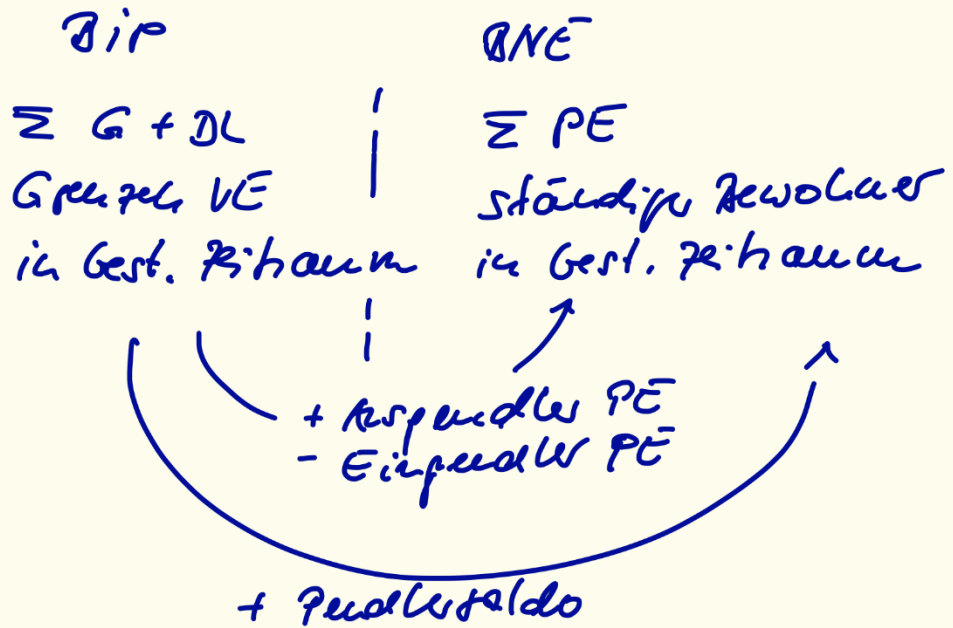 BiP
Σ G + DL
Grenzen VE
in best. Zeitraum
BNE
Σ PE
ständiger Bewohner
in best. Zeitraum
+ Auspendler PE
- Einpendler PE
+ Pendlersaldo